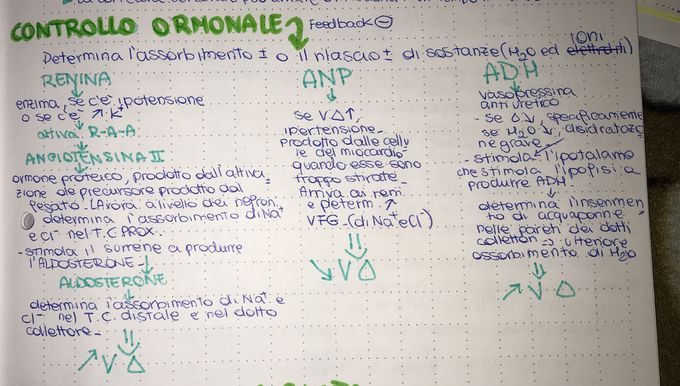 CONTROLLO ORMONALE Feedback ⊖
Determina l'assorbimento ± o il rilascio ± di sostanze (H₂O ed elettroliti ioni)
RENINA
enzima, se c'è ipotensione
o se c'è ↗ K⁺
attiva R-A-A
ANGIOTENSINA II
ormone proteico, prodotto dall'attiva=
zione del precursore prodotto dal
fegato. Lavora a livello dei nefroni.
determina l'assorbimento di Na⁺
e Cl⁻ nel T.C PROX.
- stimola il surrene a produrre
l'ALDOSTERONE
ALDOSTERONE
determina l'assorbimento di Na⁺ e
Cl⁻ nel T.C. distale e nel dotto
collettore
↗ V Δ
ANP
se VΔ↑,
ipertensione
prodotto dalle cellu
le del miocardio
quando esse sono
troppo stirate.
Arriva ai reni
e determ. ↗
VFG (di Na⁺ e Cl⁻)
↘ V Δ
ADH
vasopressina
antiuretico
- se Δ↓, specificamente
se H₂O ↓, disidratazio
ne grave.
- stimola l'ipotalamo
che stimola l'ipofisi a
produrre ADH.
determina l'inserimen
to di acquaporine
nelle pareti dei dotti
collettori => ulteriore
assorbimento di H₂O
↗ V Δ